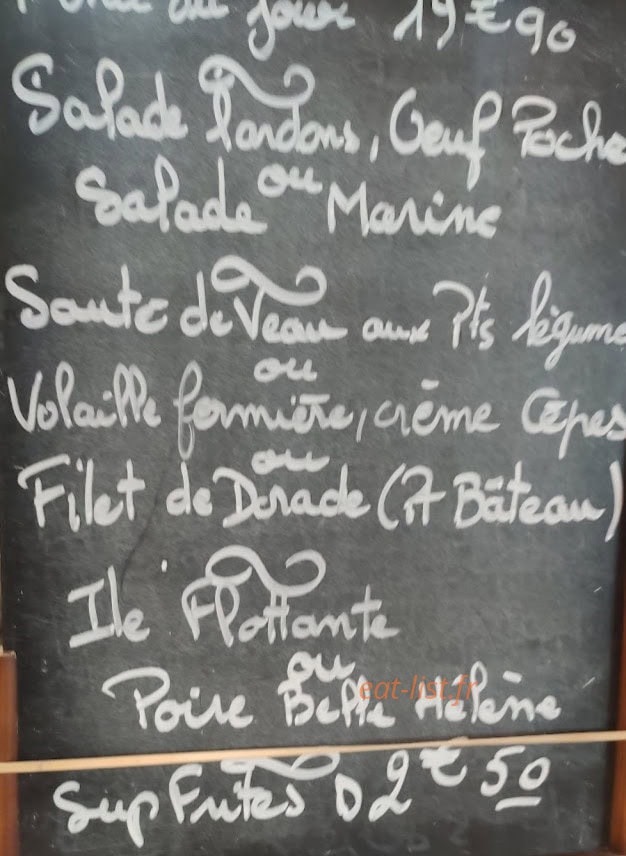 Menu du jour 19€90
Salade Lardons, Oeuf Poché
ou
Salade Marine
Sauté de Veau aux Pts légume
ou
Volaille fermière, crème Cèpes
ou
Filet de Dorade (Pt Bâteau)
Ile Flottante
ou
Poire Belle Hélène
eat-list.fr
Sup Frites D 2€50